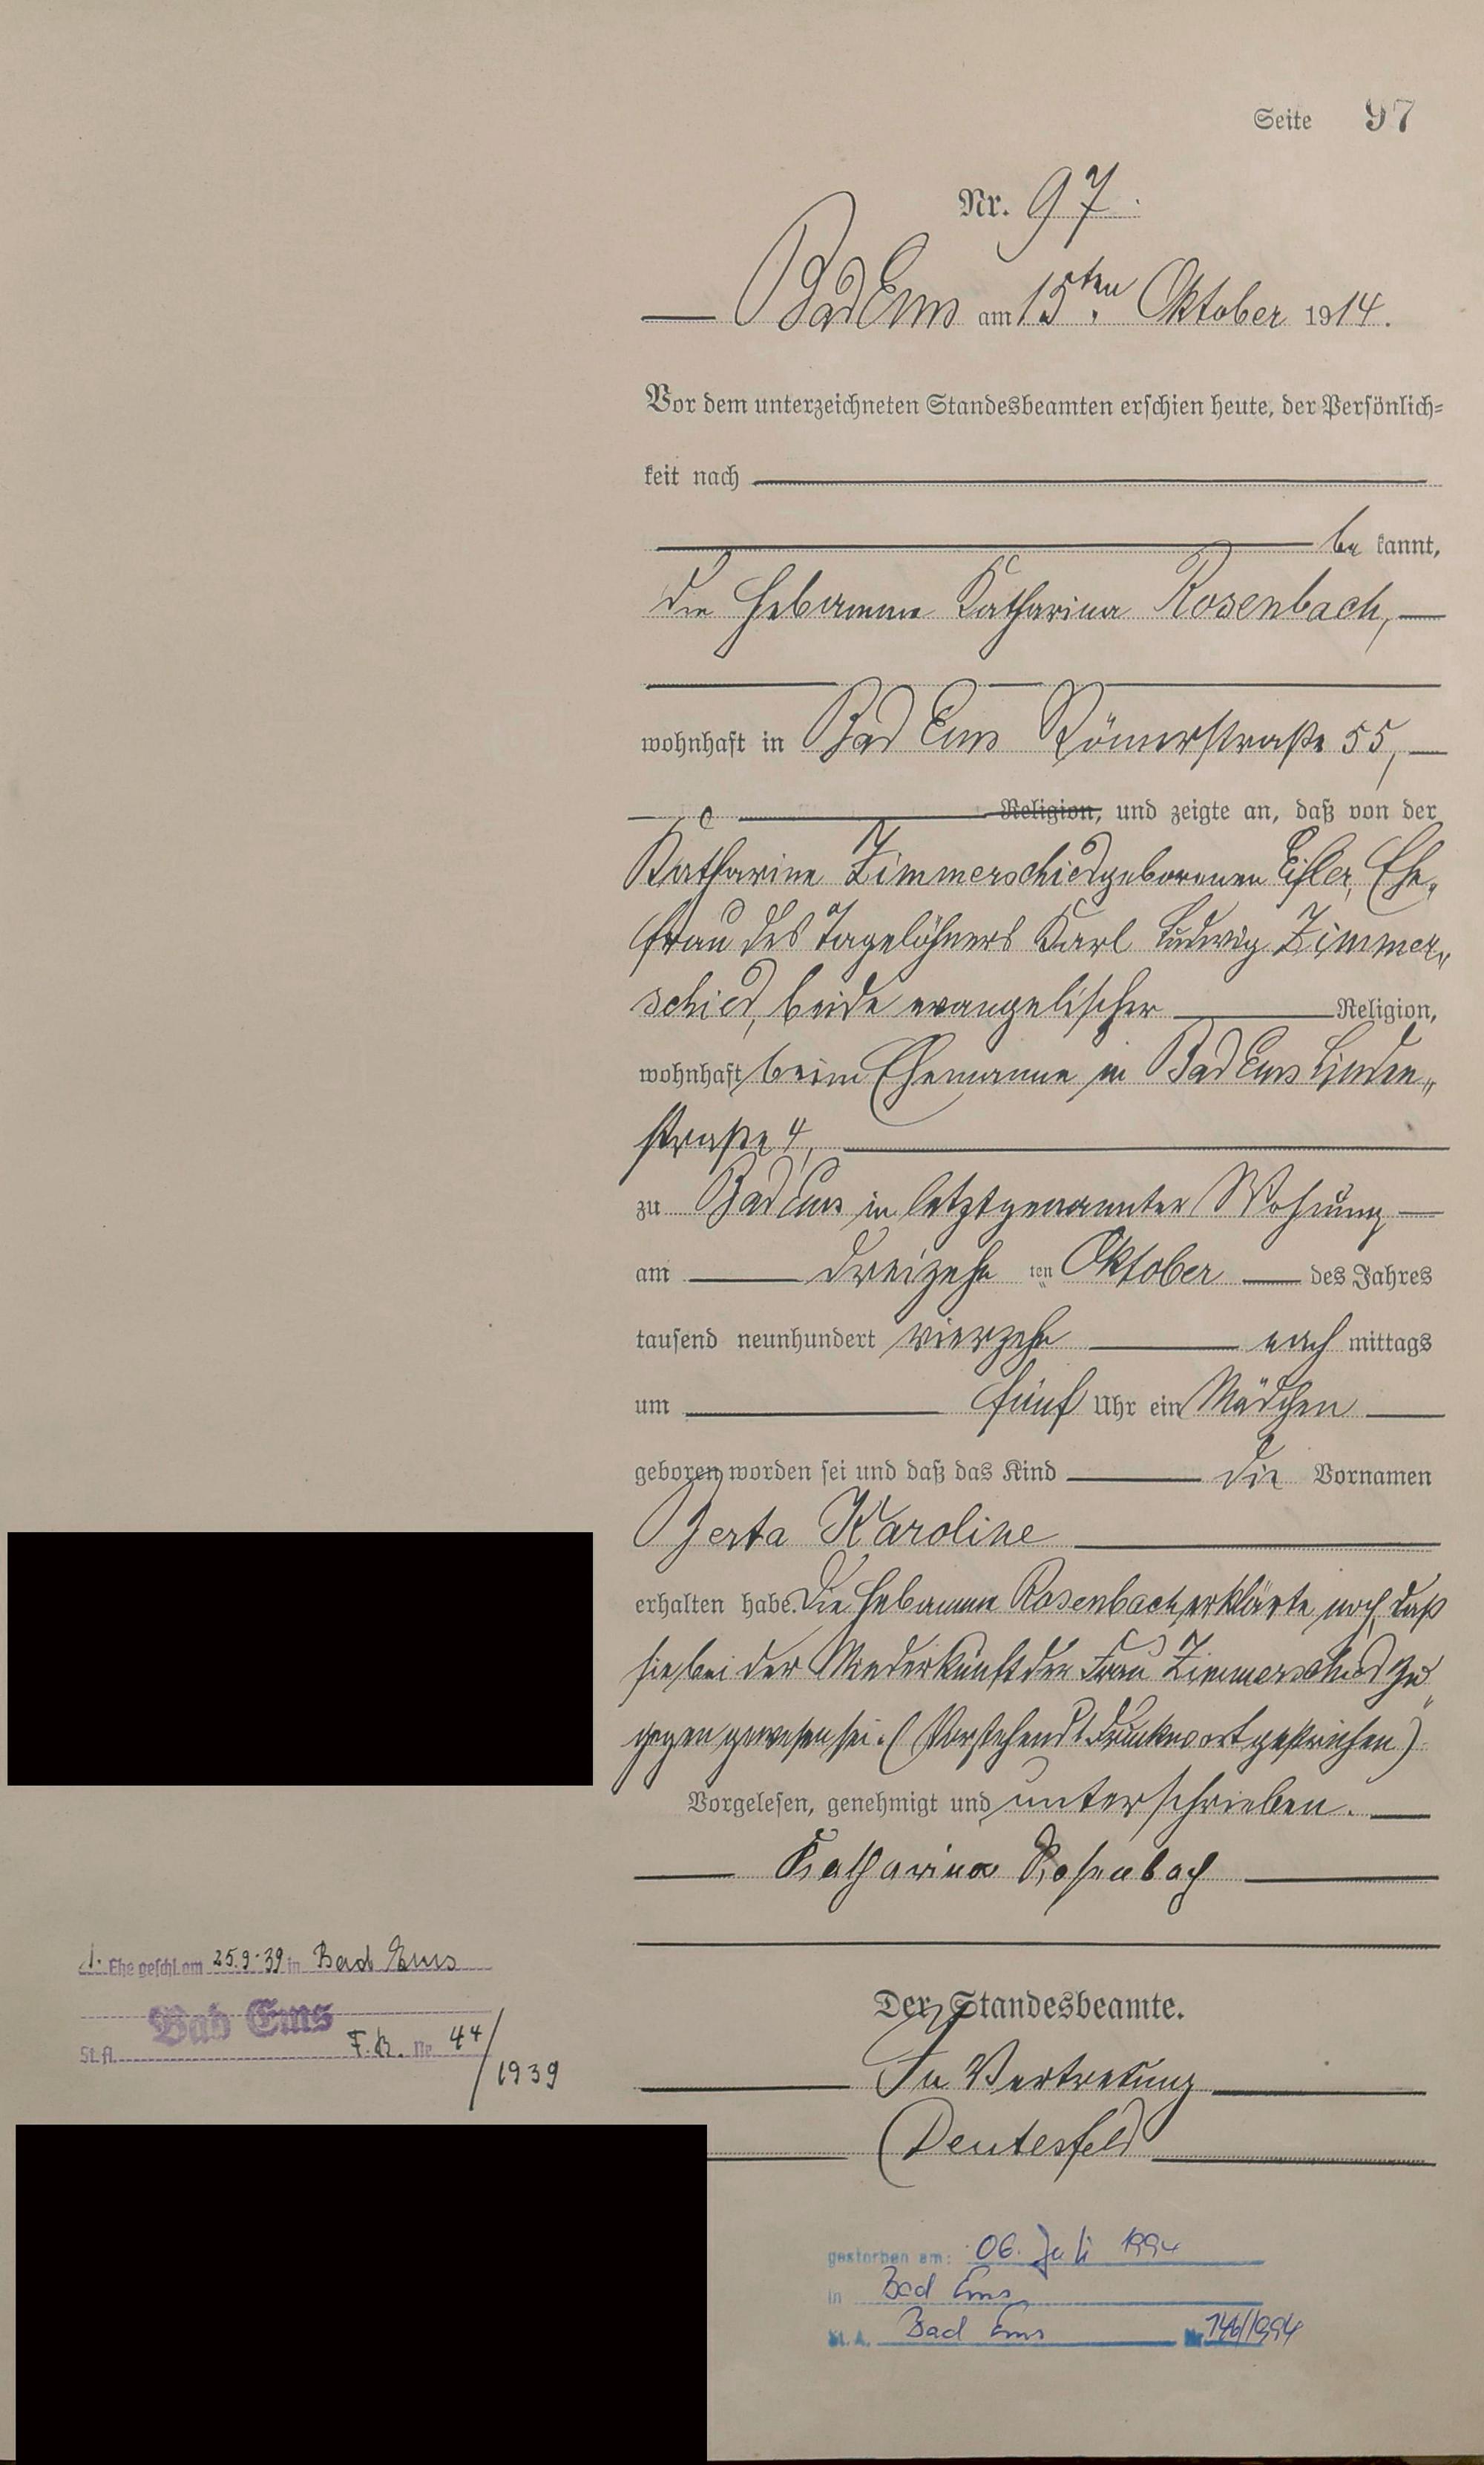 Seite 97
Nr. 97.
Bad Ems am 15ten Oktober 1914.
Vor dem unterzeichneten Standesbeamten erschien heute, der Persönlich=
keit nach
be kannt,
die Hebamme Katharina Rosenbach,
wohnhaft in Bad Ems Römerstraße 55,
Religion, und zeigte an, daß von der
Katharine Zimmerschied geborenen Eisler, Ehe„
frau des Tagelöhners Karl Ludwig Zimmer„
schied, beide evangelischer Religion,
wohnhaft beim Ehemanne in Bad Ems Linden„
straße 4,
zu Bad Ems in letztgenannter Wohnung
am dreizehn ten Oktober des Jahres
tausend neunhundert vierzehn nach mittags
um fünf Uhr ein Mädchen
geboren worden sei und daß das Kind die Vornamen
Berta Karoline
erhalten habe. Die Hebamme Rosenbach erklärte noch, daß
sie bei der Niederkunft der Frau Zimmerschied zu„
gegen gewesen sei. (Vorstehend 1 Druckwort gestrichen)
Vorgelesen, genehmigt und unterschrieben.
Katharina Rosenbach
Der Standesbeamte.
In Vertretung
Deutesfeld
1. Ehe geschl. am 25.9.39 in Bad Ems
Bad Ems
St. A. F.B. Nr. 44/
1939
gestorben am: 06. Juli 1994
in Bad Ems
St. A. Bad Ems Nr. 146/1994